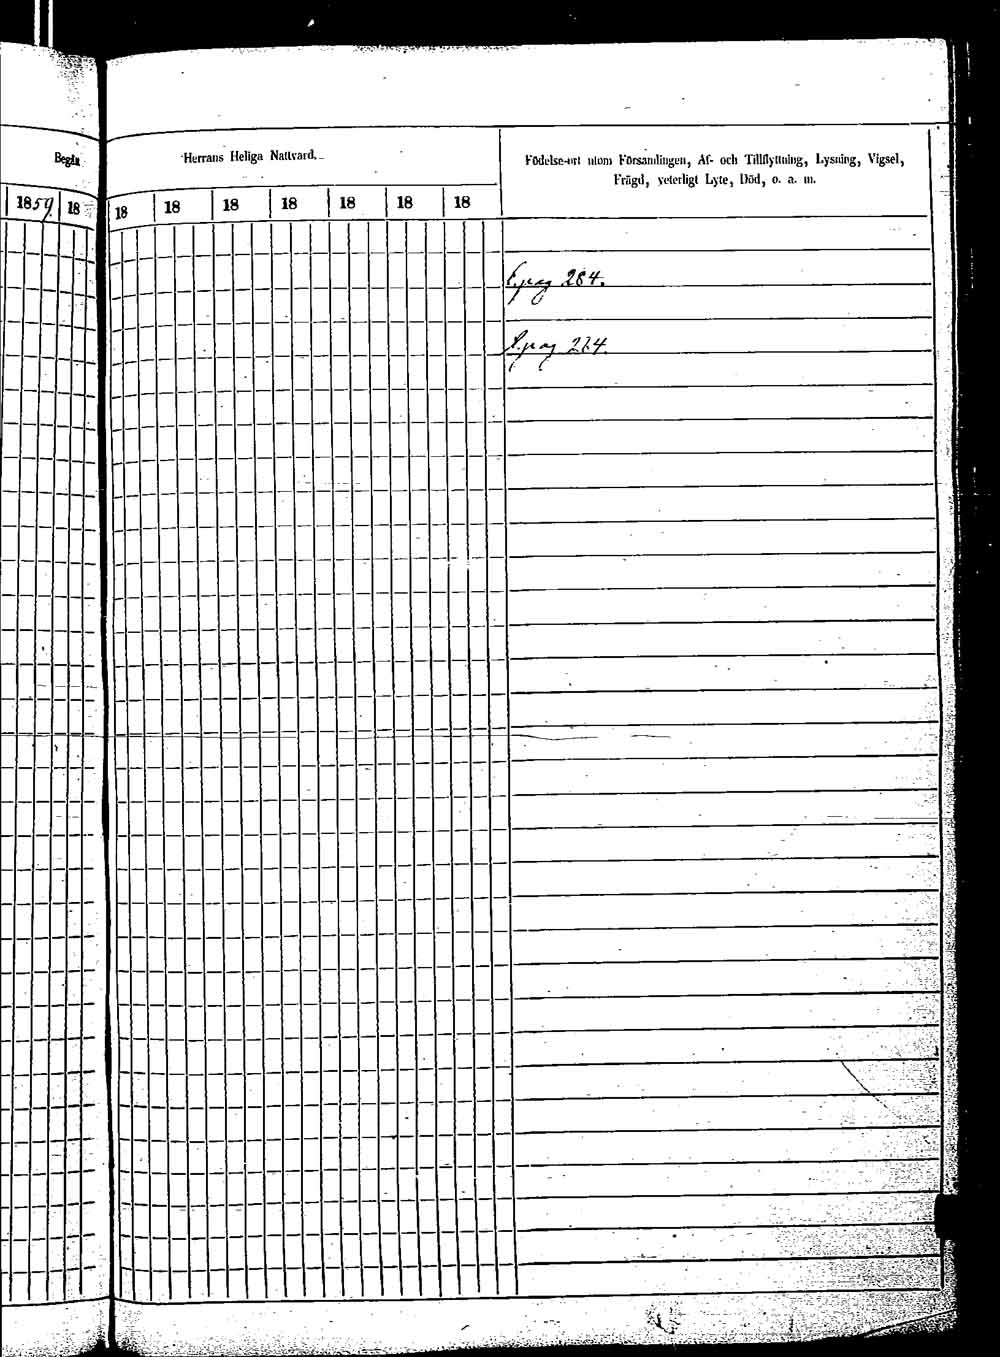 Begå
Herrans Heliga Nattvard.
Födelse-ort utom Församlingen, Af- och Tillflyttning, Lysning, Vigsel,
Frägd, veterligt Lyte, Död, o. a. m.
1859. 18 18 18 18 18 18 18 18
pag 284.
pag 224.